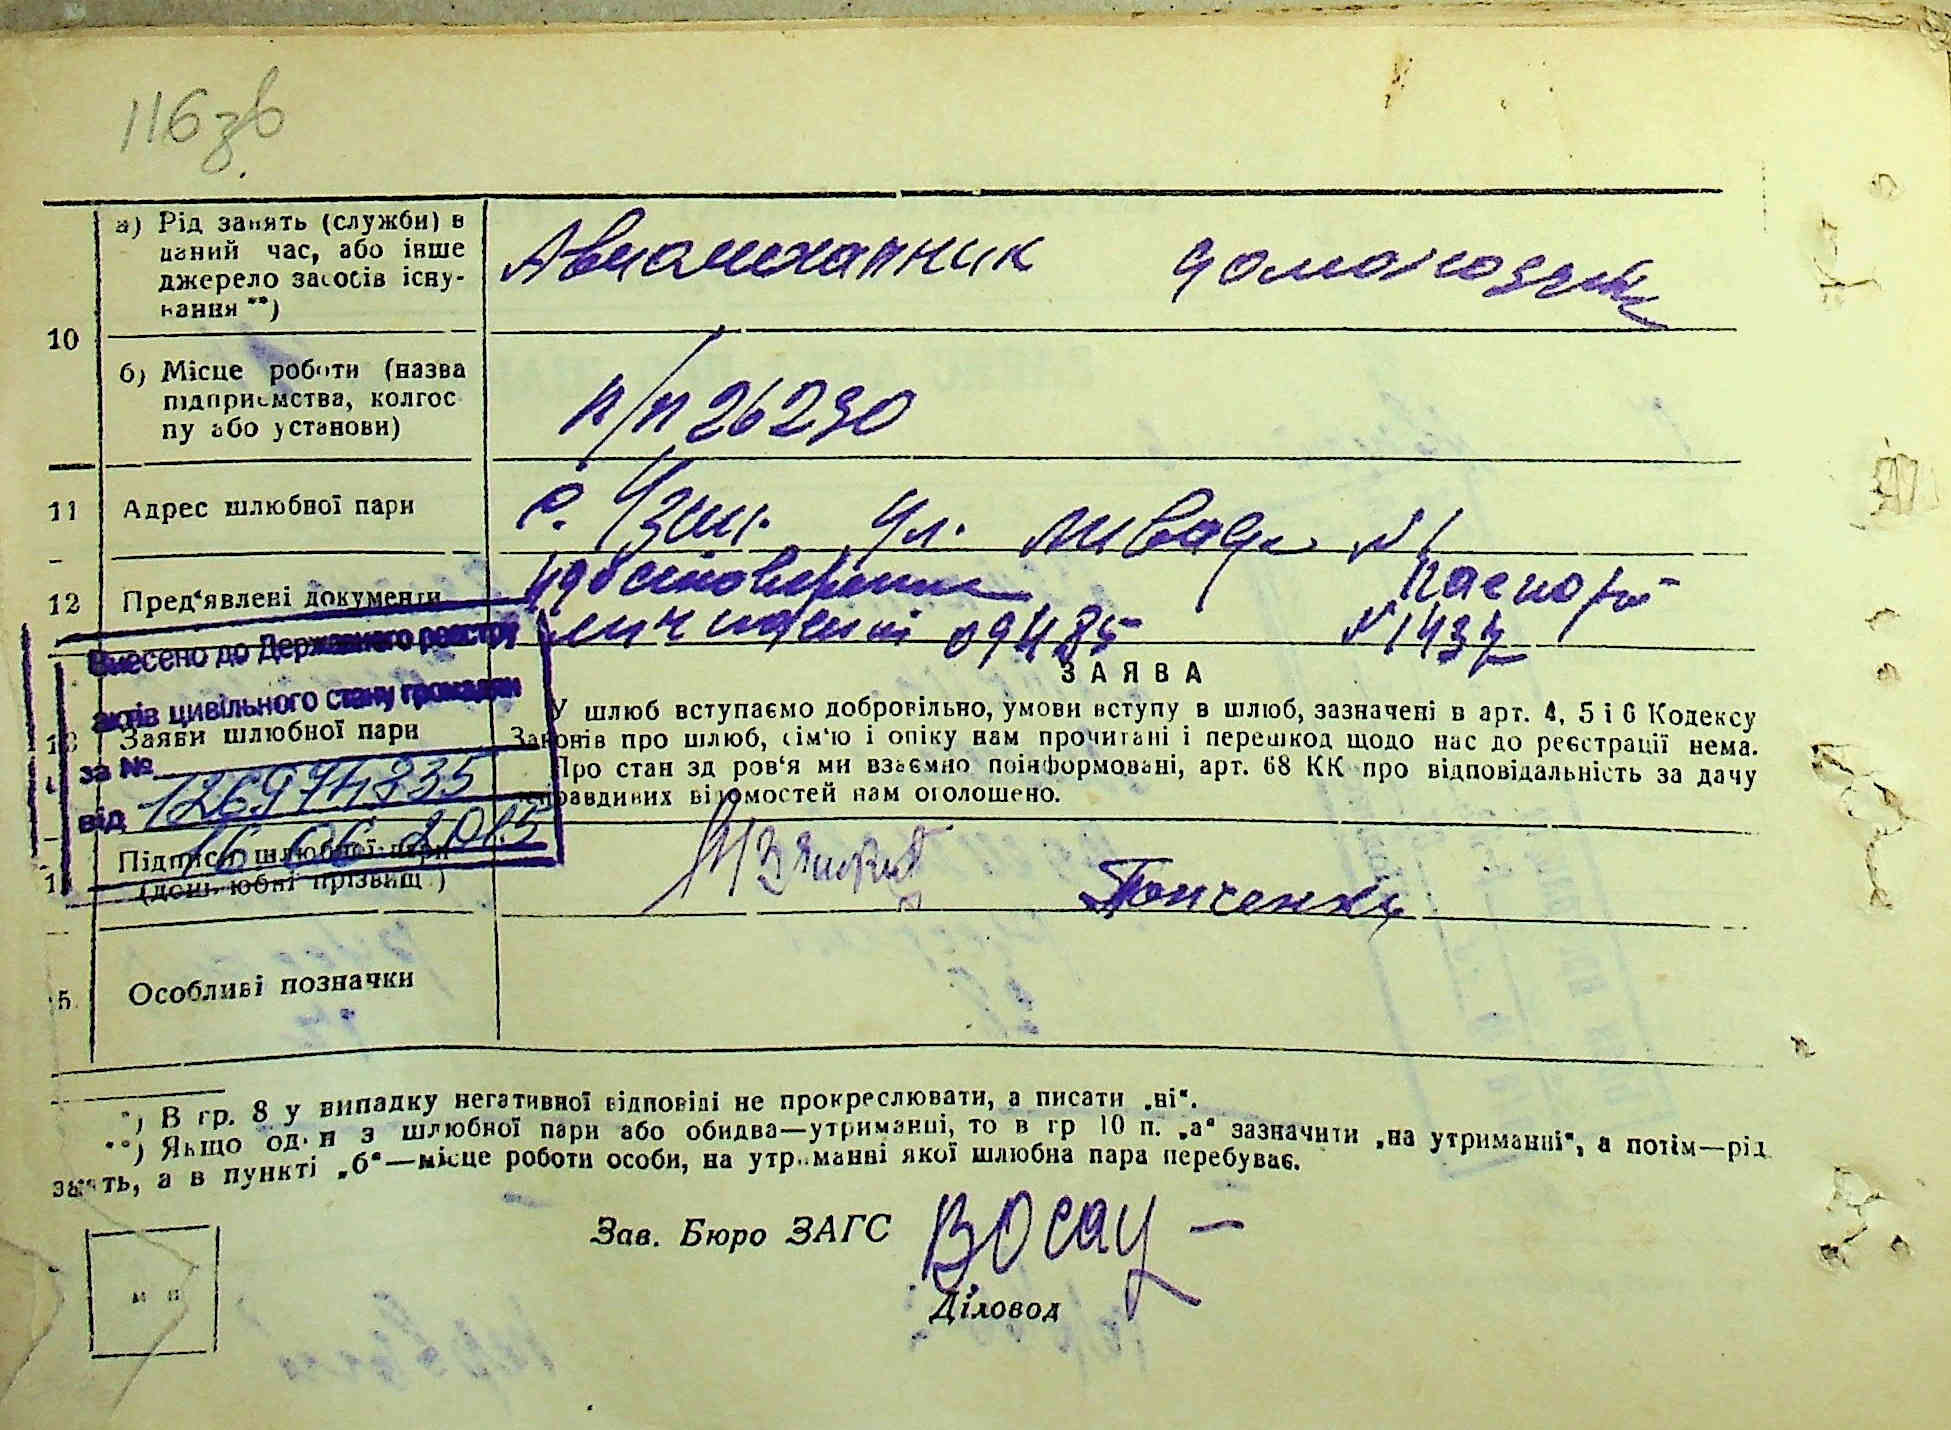 116 зв.
а) Рід занять (служби) в
даний час, або інше
джерело засобів існу-
вання **)
Авиамеханник домохозяйк
10
б) Місце роботи (назва
підприємства, колгос-
пу або установи)
п/п 26290
11 Адрес шлюбної пари
с. Узин. ул. №1
12 Пред'явлені документи
удостоверение паспорт
личности 09485 №1437
Внесено до Державного реєстру
актів цивільного стану громадян
за №
від 16 06 2015
13 Заяви шлюбної пари
ЗАЯВА
У шлюб вступаємо добровільно, умови вступу в шлюб, зазначені в арт. 4, 5 і 6 Кодексу
Законів про шлюб, сім'ю і опіку нам прочитані і перешкод щодо нас до реєстрації нема.
Про стан здоров'я ми взаємно поінформовані, арт. 68 КК про відповідальність за дачу
неправдивих відомостей нам оголошено.
Підписи шлюбної пари
(дошлюбні прізвищ.)
5. Особливі позначки
*) В гр. 8 у випадку негативної відповіді не прокреслювати, а писати „ні“.
**) Якщо один з шлюбної пари або обидва—утриманці, то в гр 10 п. „а“ зазначити „на утриманні“, а потім—рід
занять, а в пункті „б“—місце роботи особи, на утриманні якої шлюбна пара перебуває.
Зав. Бюро ЗАГС
Діловод
М П